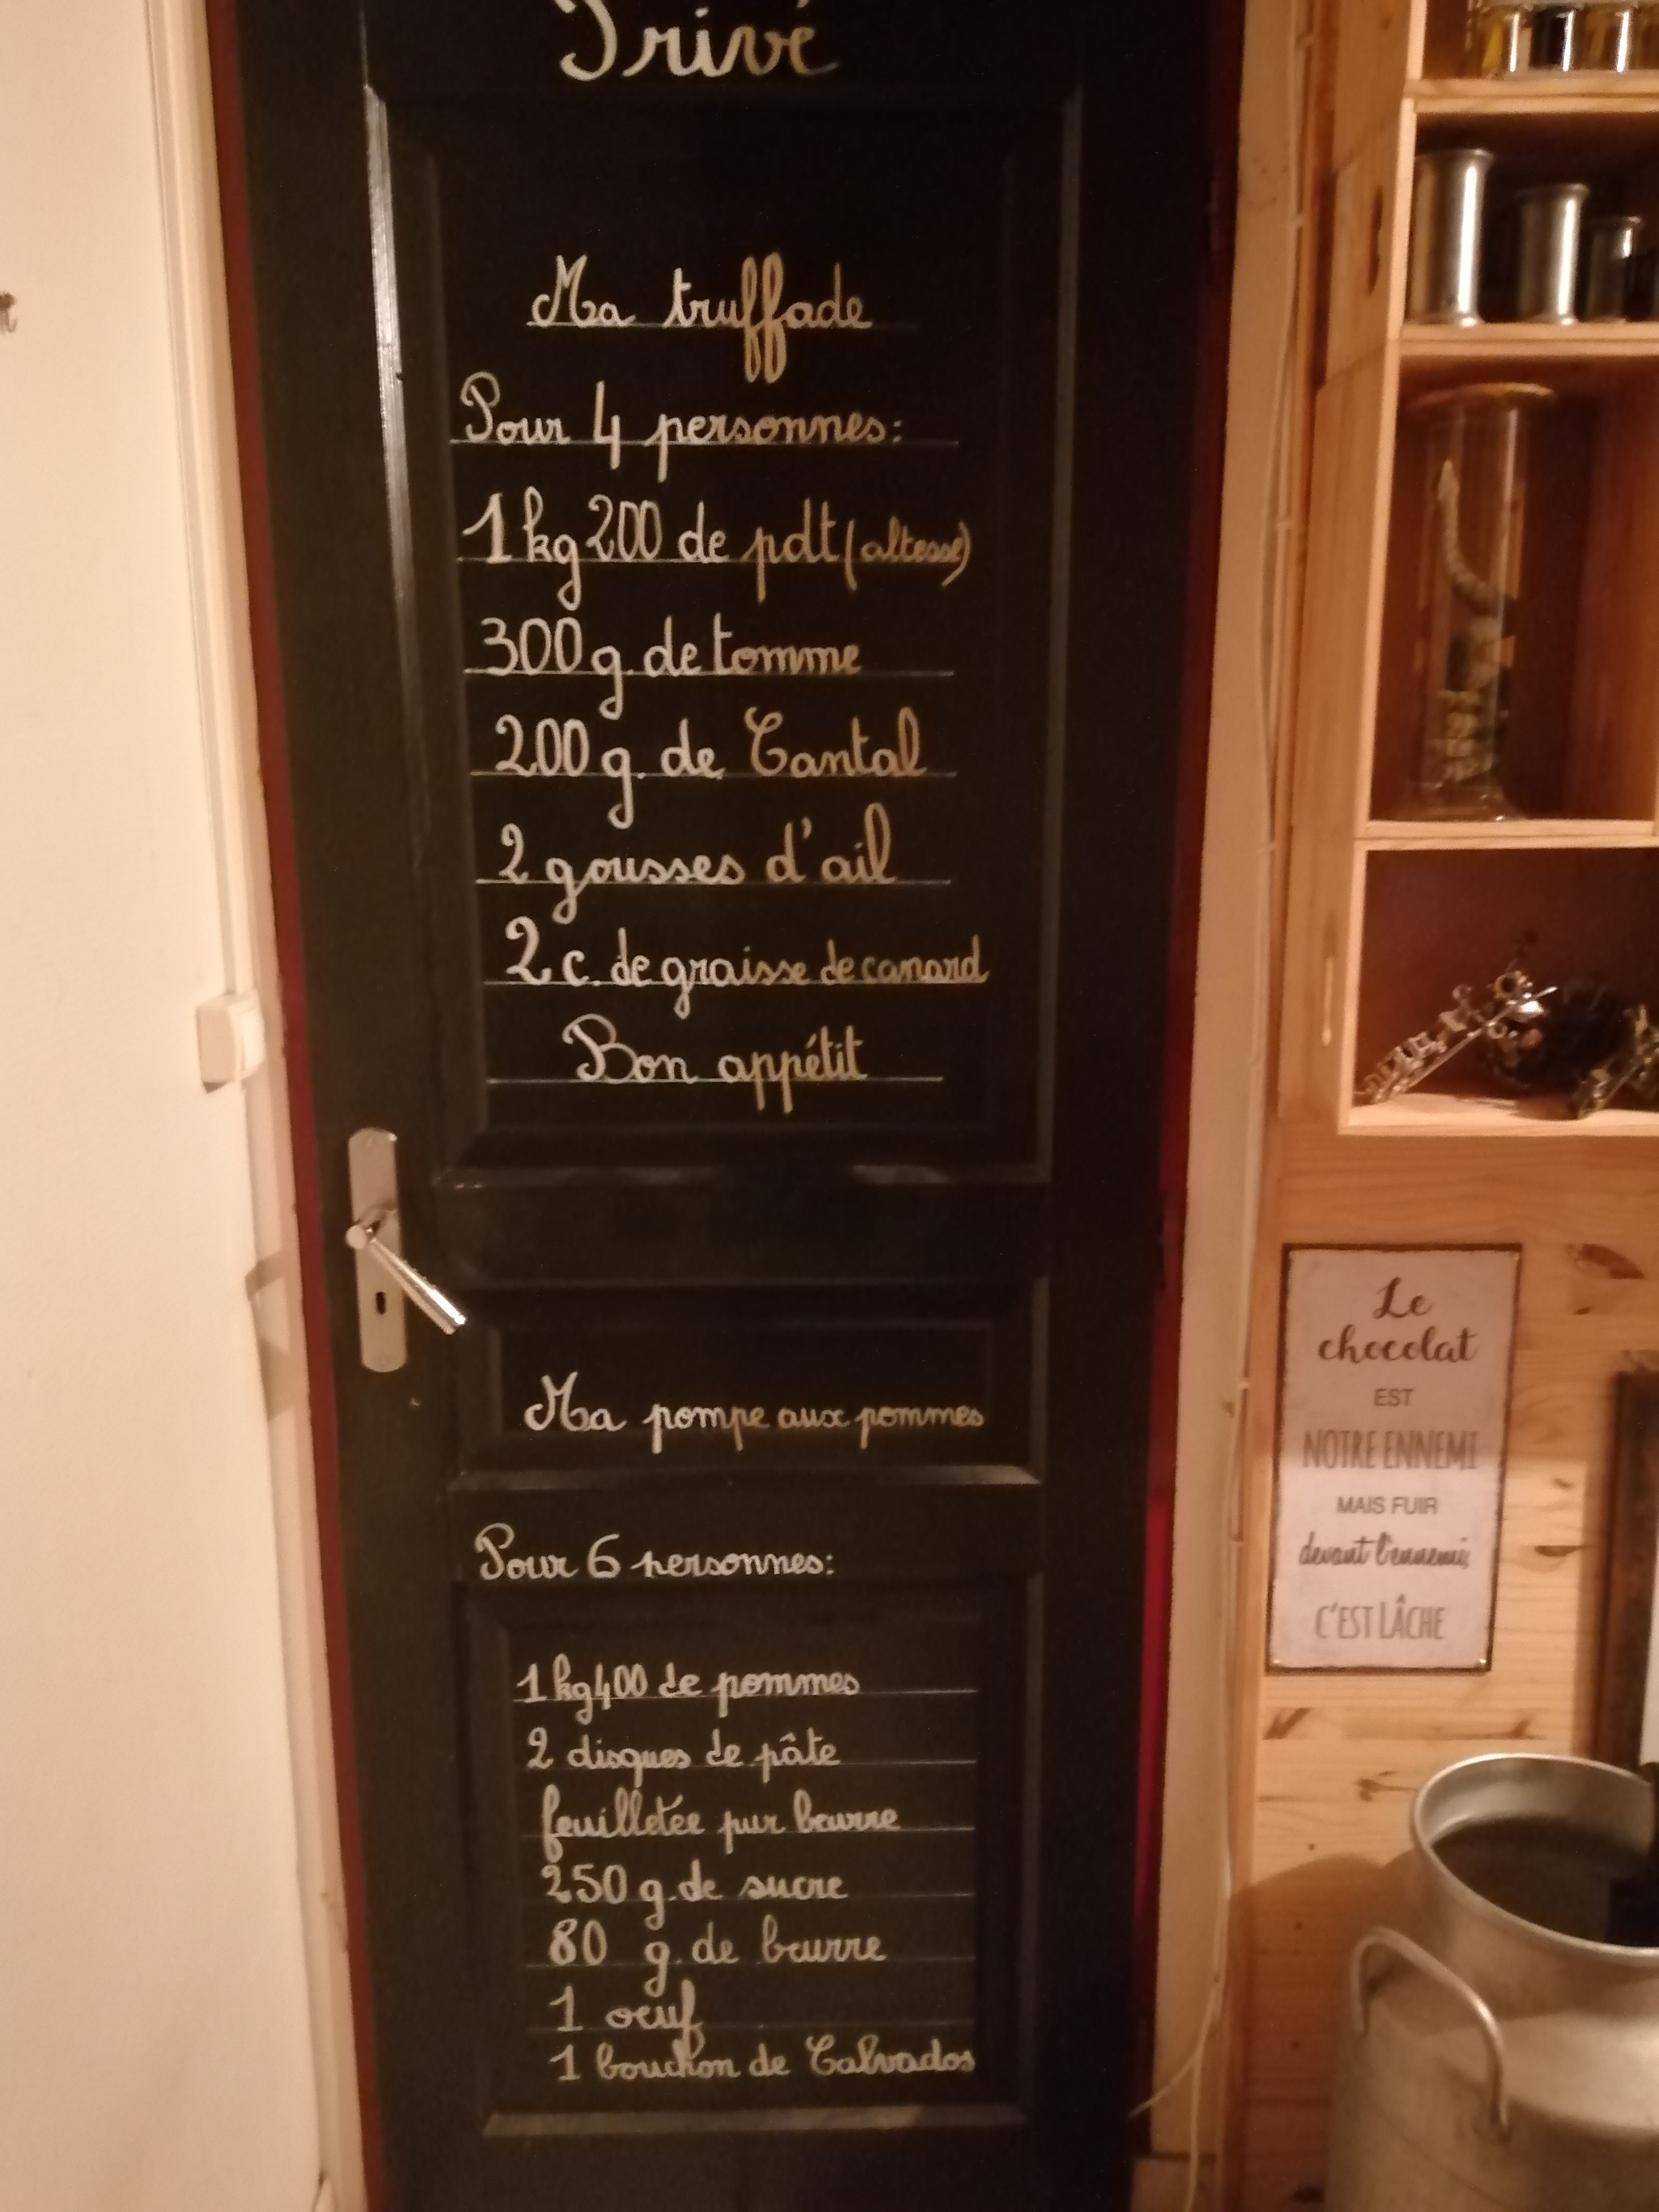 Privé
Ma truffade
Pour 4 personnes:
1kg200 de pdt (altesse)
300g. de tomme
200g. de Cantal
2 gousses d'ail
2 c. de graisse de canard
Bon appétit
Ma pompe aux pommes
Pour 6 personnes:
1kg400 de pommes
2 disques de pâte
feuilletée pur beurre
250 g. de sucre
80 g. de beurre
1 oeuf
1 bouchon de Calvados
Le
chocolat
EST
NOTRE ENNEMI
MAIS FUIR
devant l'ennemi,
C'EST LÂCHE